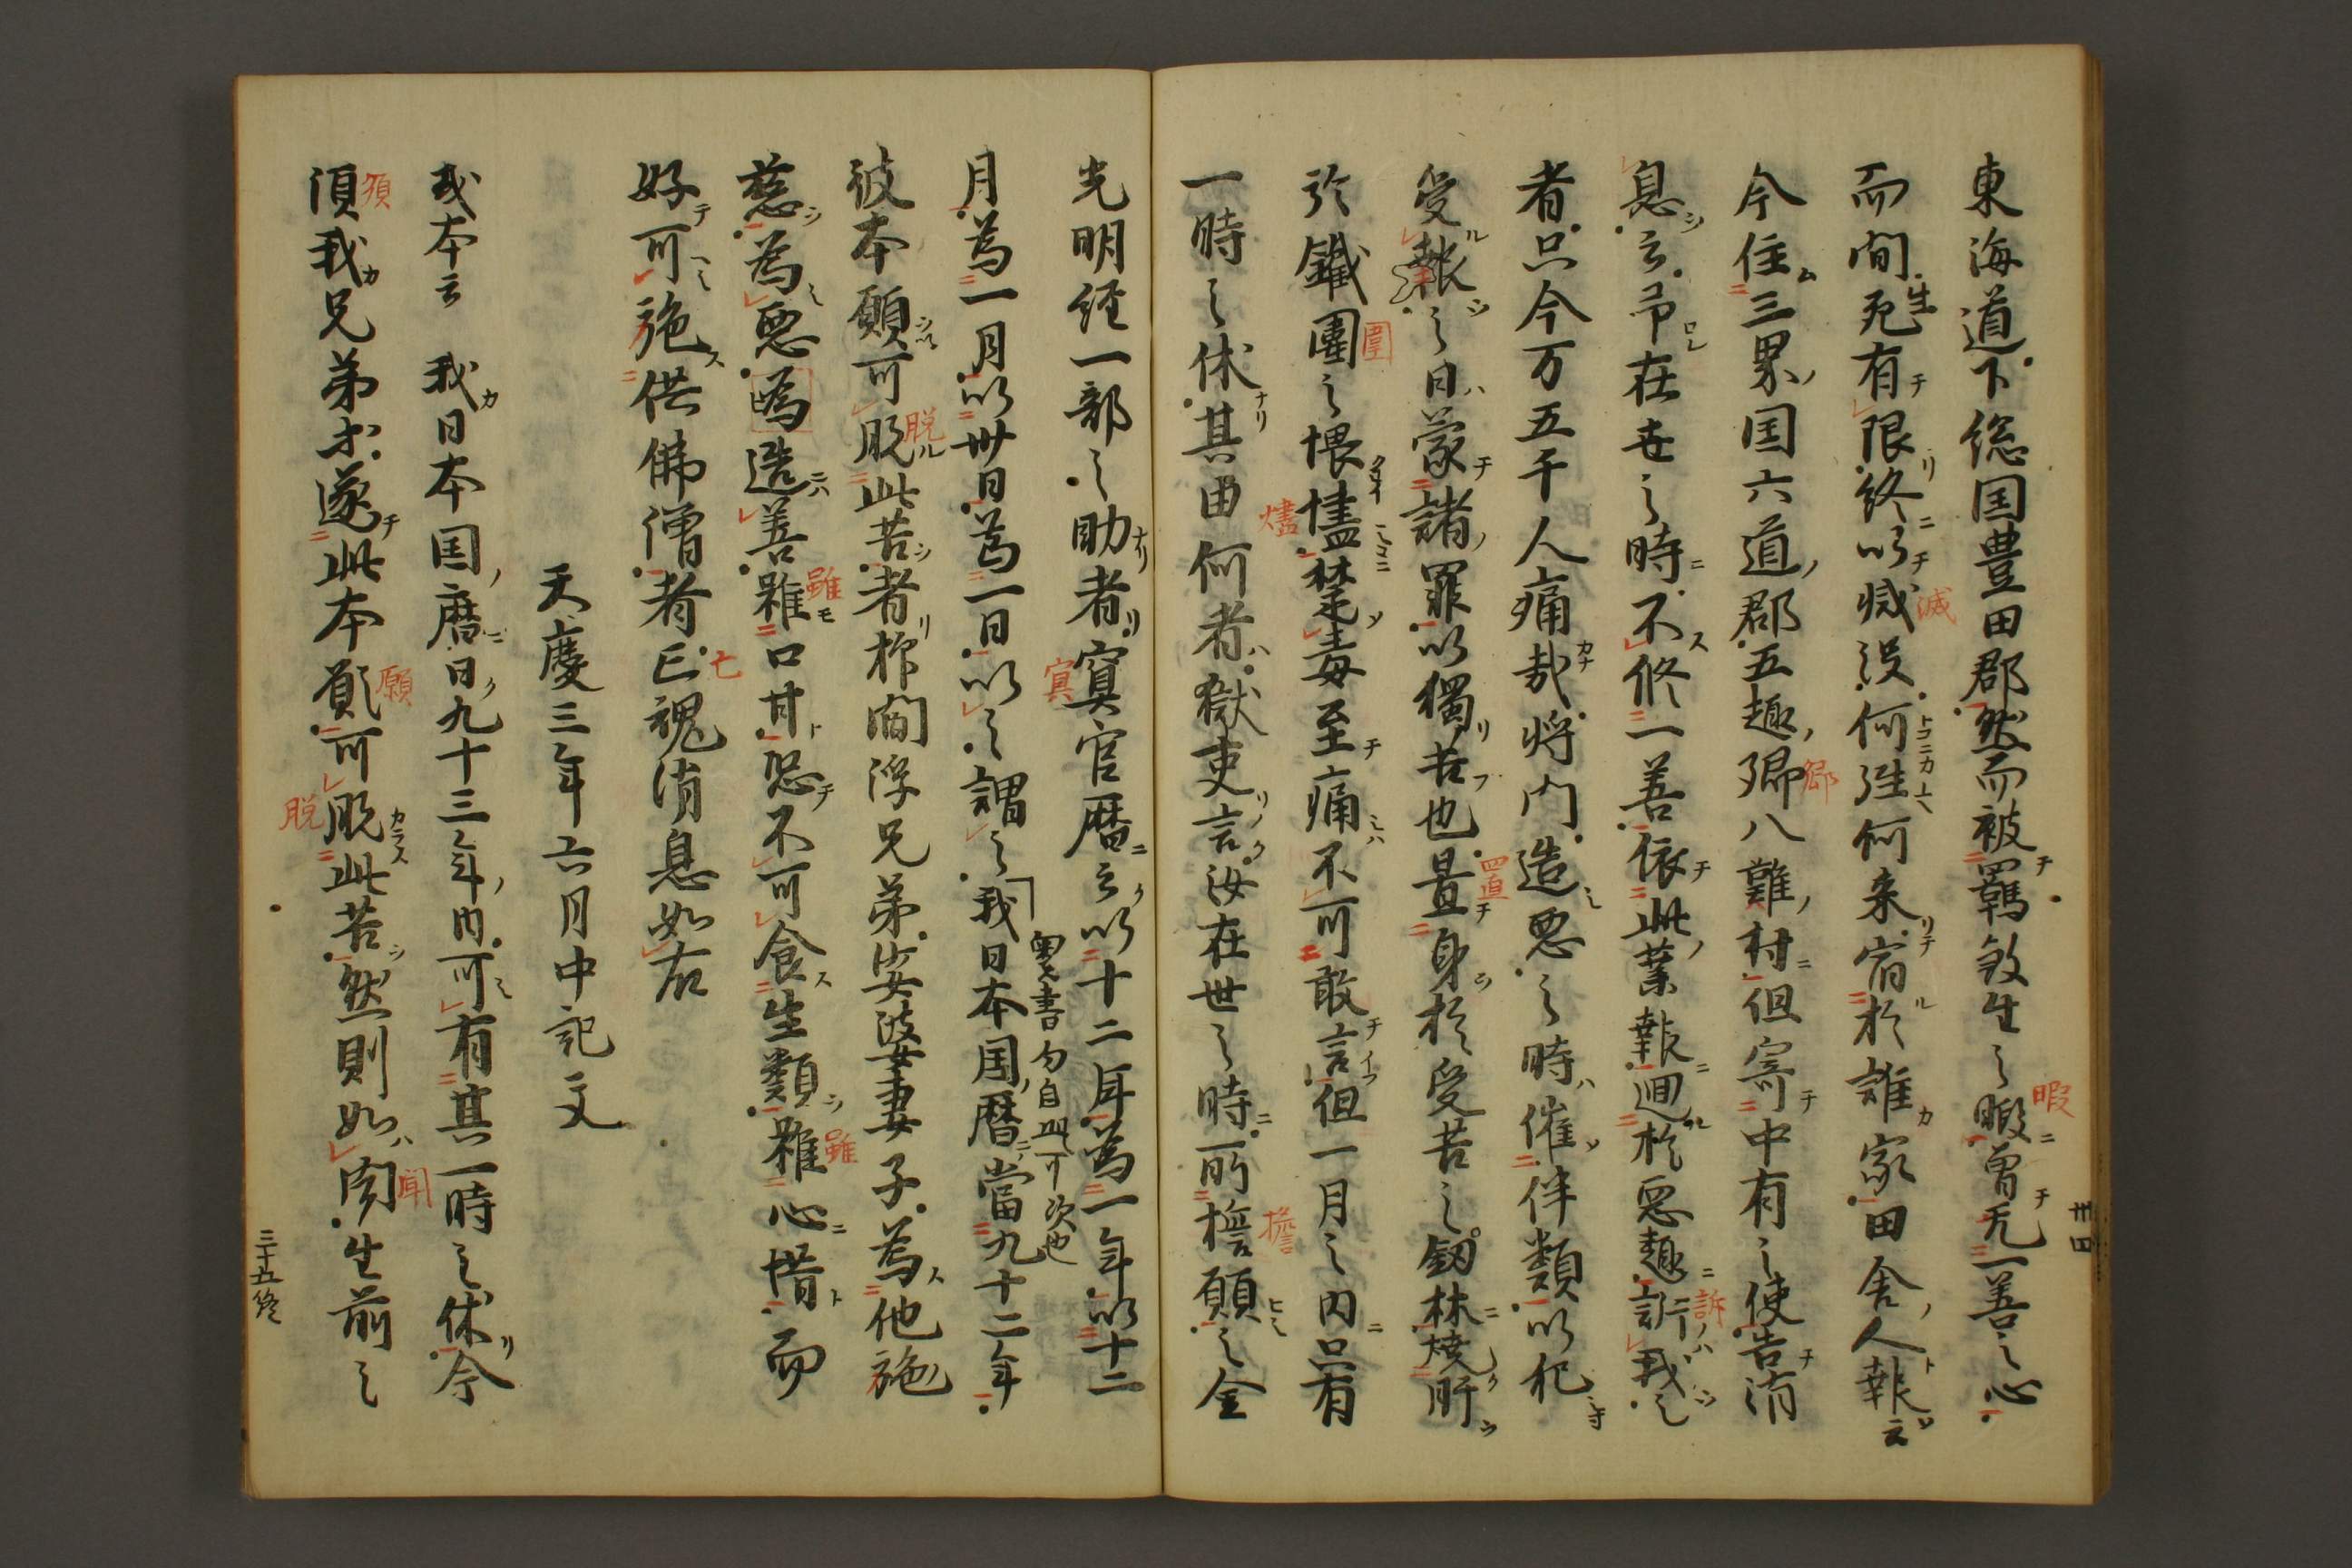 東海道下総国豊田郡然而被羈敓生之暇曽无一善之心
而間生死有限終以滅没何往何来宿於誰家田舎人報云
今住三界国六道郡五趣郷八難村但寄中有之使告消
息云予在世之時不修一善依此業報廻於悪趣訴我之
者只今万五千人痛哉将門造悪之時催伴類以犯
受報之日蒙諸罪以獨苦也置身於受苦之釼林焼肝
於鐵圍之煨燼楚毒至痛不可敢言但一月之内只有
一時之休其由何者獄吏言汝在世之時所擔願之金
光明経一部之助者冥官暦云以十二年為一年以十二
月為一月以卅日為一日以之謂之我日本国暦當九十二年
奥書勾自此可次也
彼本願可脱此苦者抑閻浮兄弟娑婆妻子為他施
慈為悪造善雖口甘恐不可食生類雖心惜而
好可施供佛僧者亡魂消息如右
天慶三年六月中記文
或本云 我日本国暦曰九十三年内可有其一時之休今
須我兄弟等遂此本願可脱此苦然則如聞生前之
卅四
三十五終